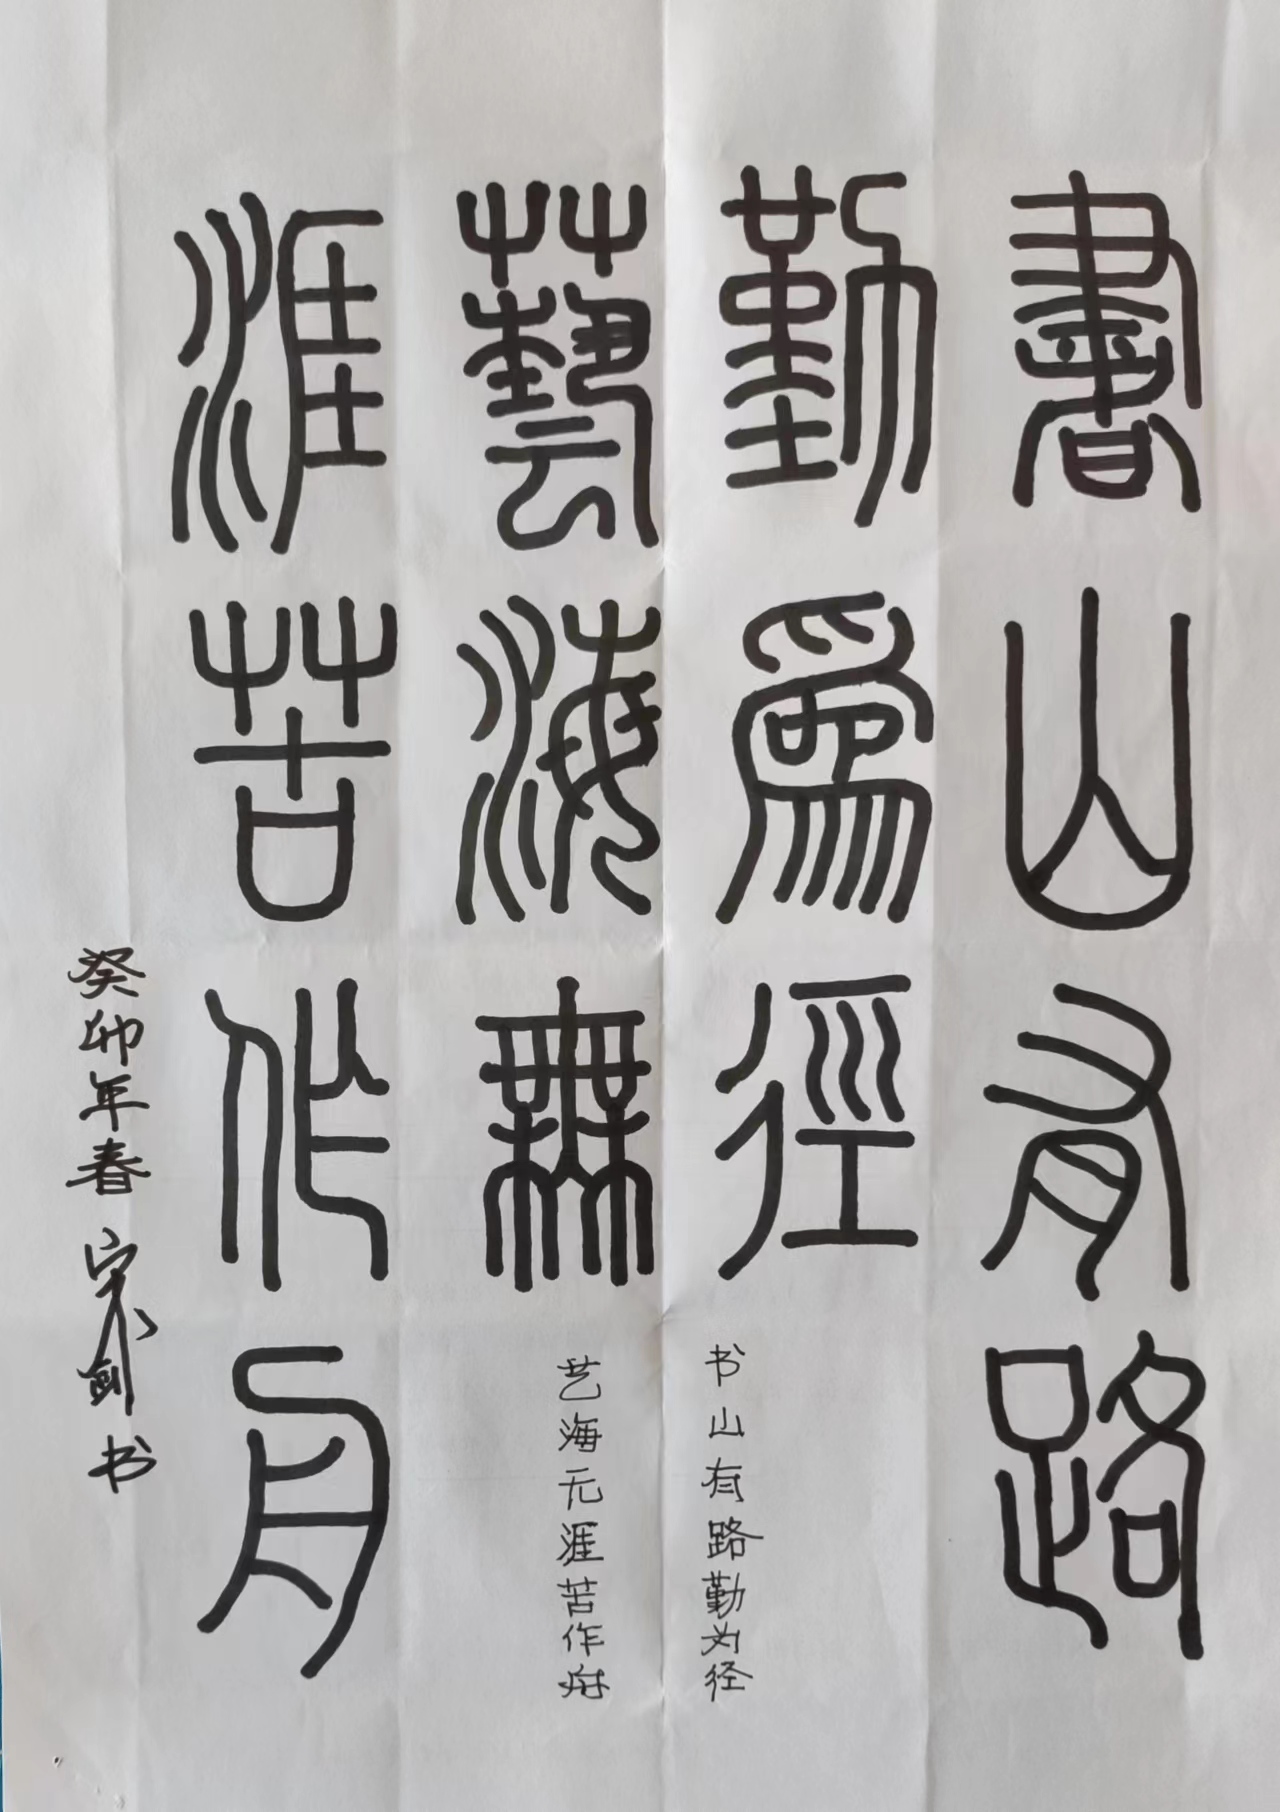 書山有路
勤爲徑
藝海無
涯苦作舟
书山有路勤为径
艺海无涯苦作舟
癸卯年春 宋剑书